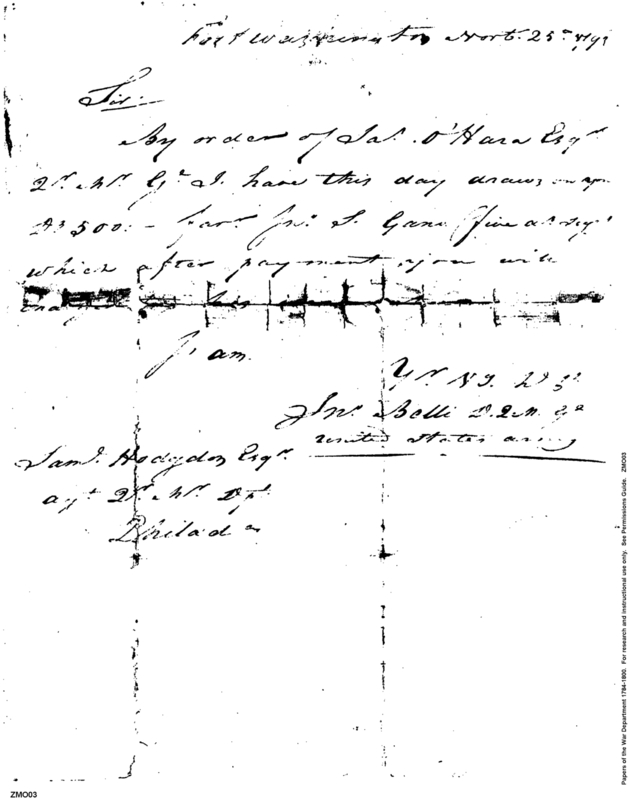 Fort Washington Novr. 25th 179
Sir
By order of Jas. O'Hara Esqr
Qr. Mr. Gl. I have this day drawn on you
Ds 500 - favr. Jno. S. Gano (five at sight
which after payment you will
I am
Yr. Ob.
Jno. Belli D. Q. M. Gl
United States army
Saml. Hodgdon Esqr.
agt Qr. Mr. Dpt
Philada
ZMO03
Papers of the War Department 1784-1800. For research and instructional use only. See Permissions Guide. ZMO03